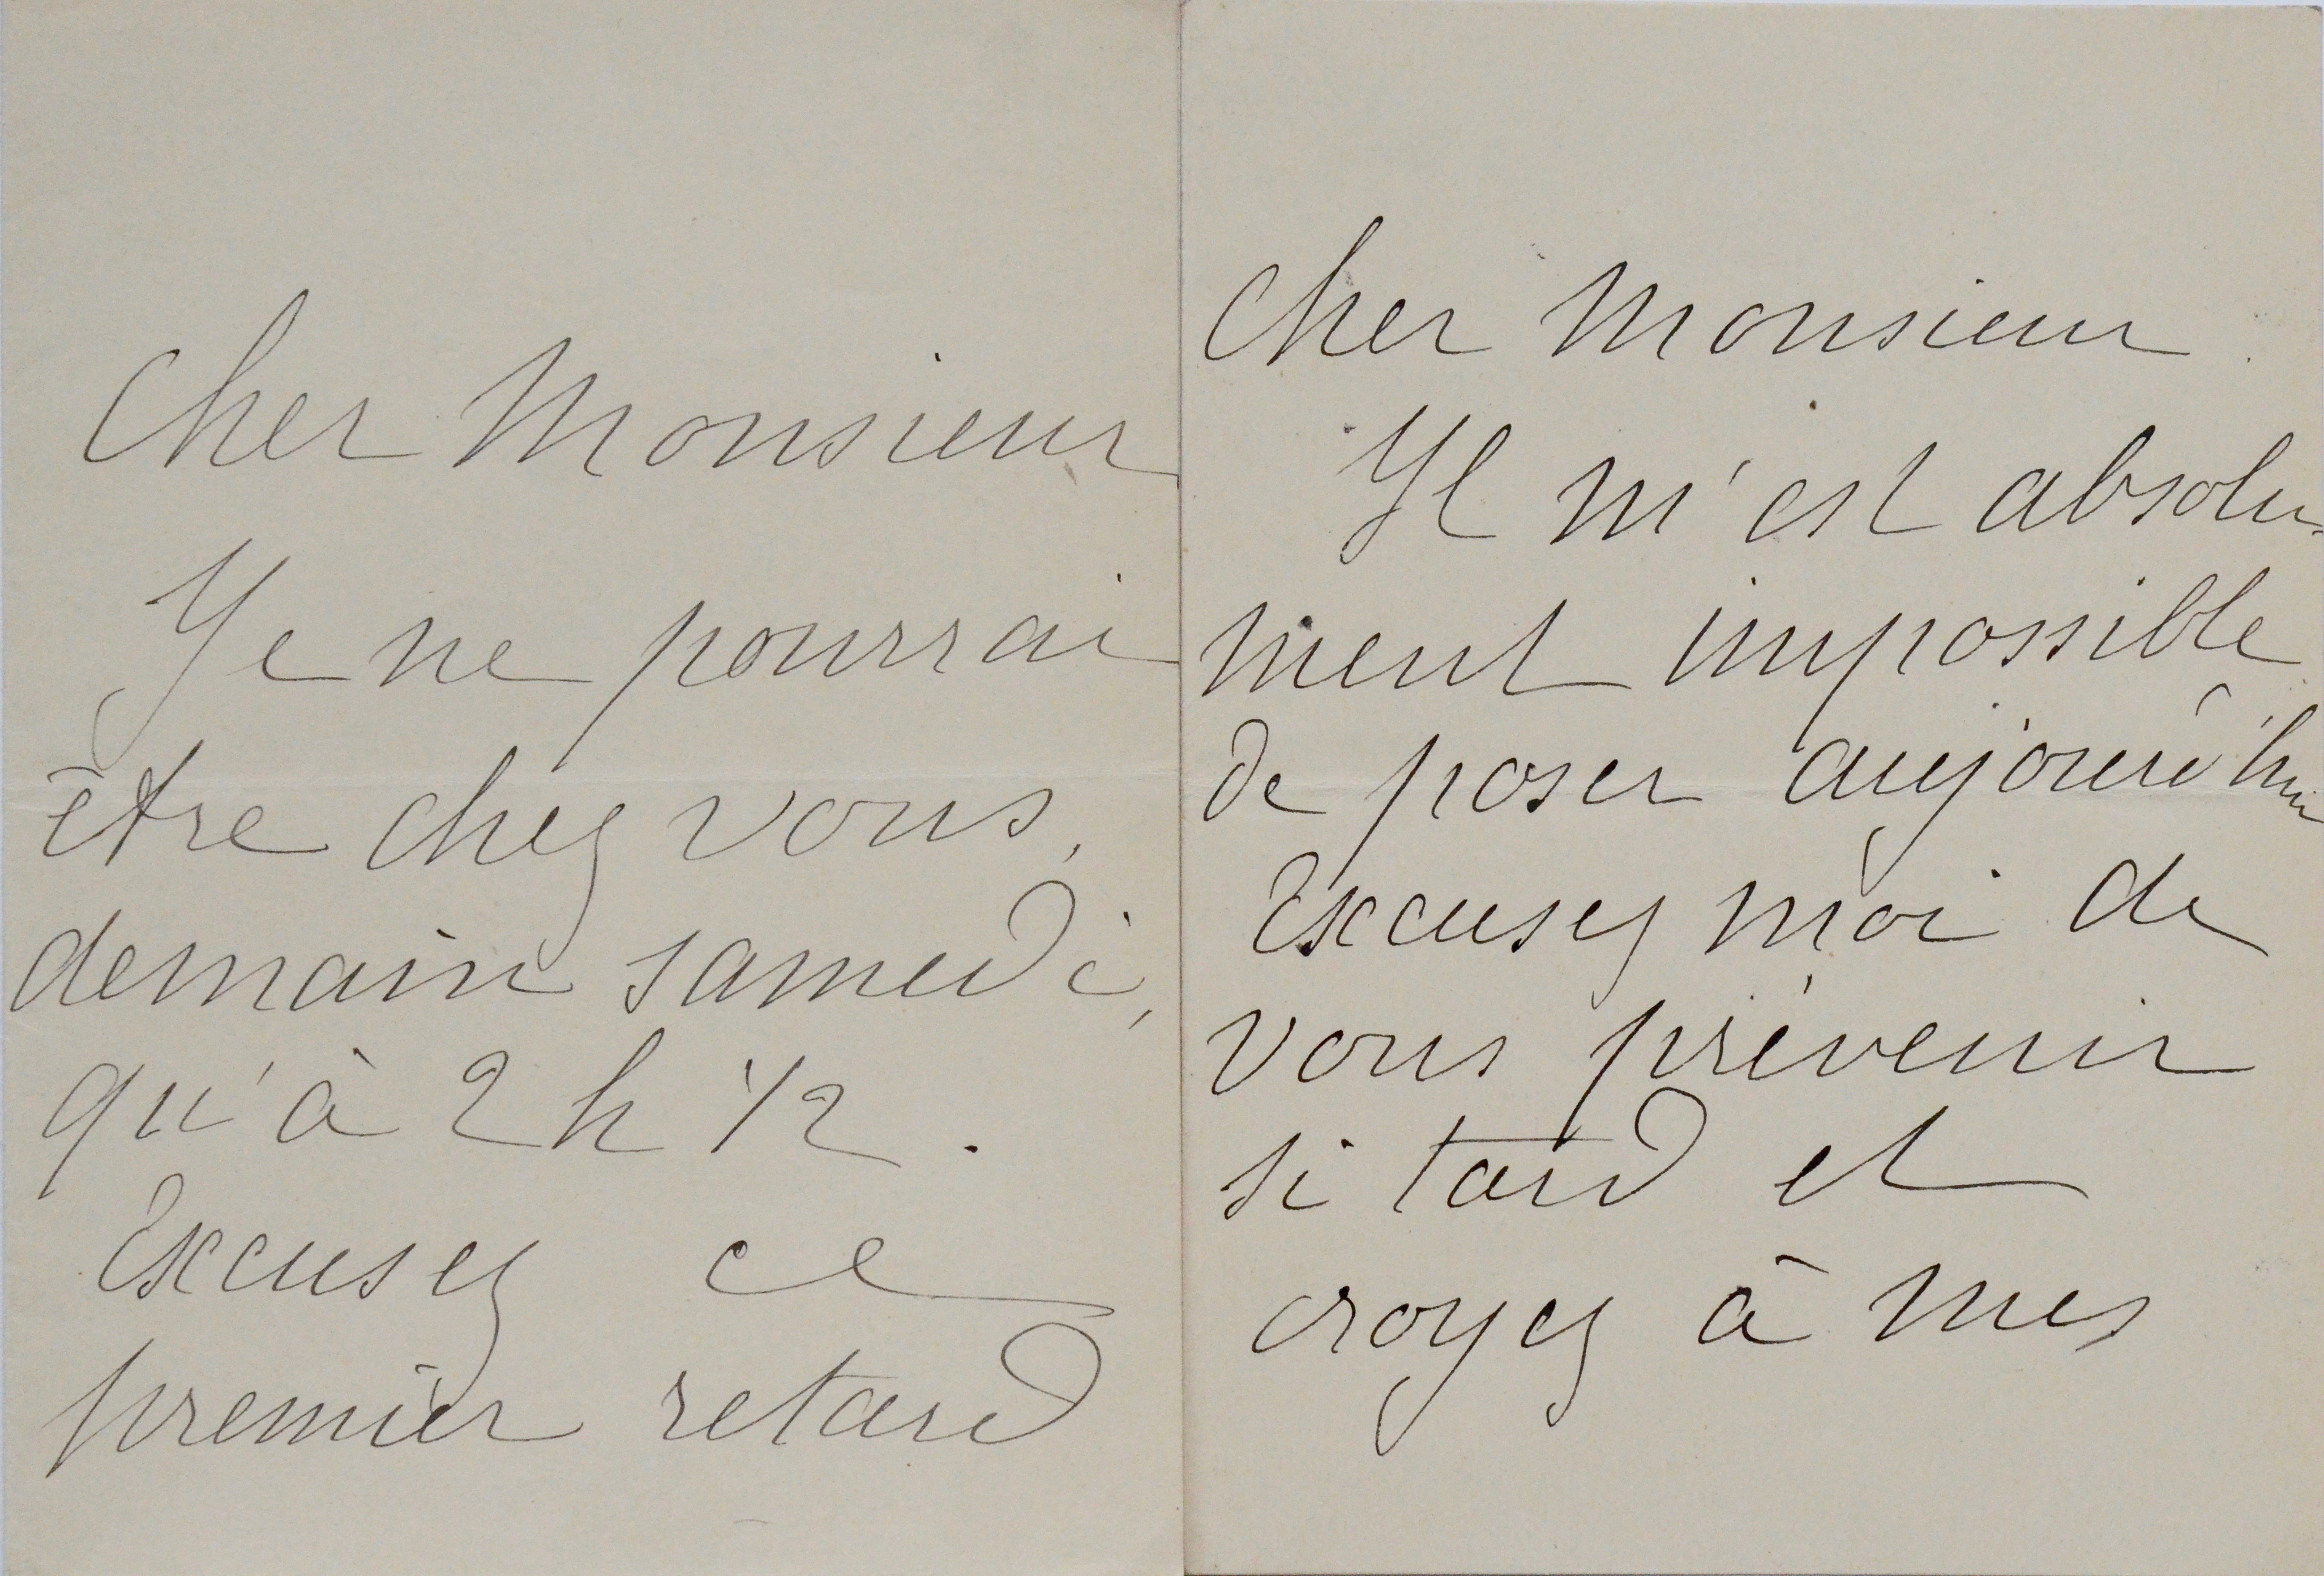 Cher Monsieur
Je ne pourrai
être chez vous,
demain samedi,
qu'à 2 h 1/2.
Excusez ce
premier retard
Cher Monsieur
Il m'est absolu-
ment impossible
de poser aujourd'hui
Excusez moi de
vous prévenir
si tard et
croyez à mes